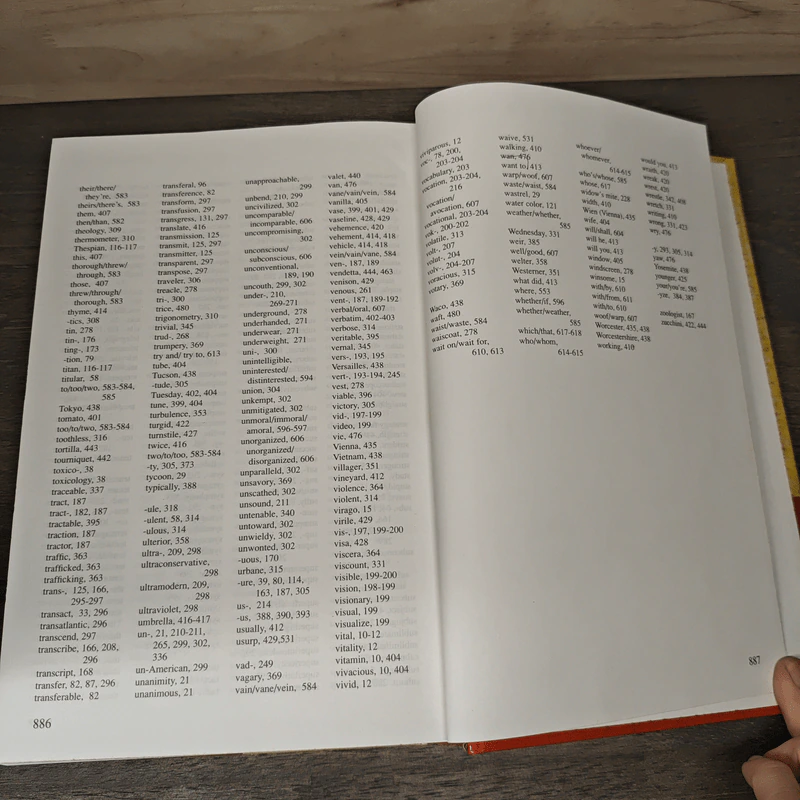 their/there/
they're, 583
theirs/there's, 583
them, 407
then/than, 582
theology, 309
thermometer, 310
Thespian, 116-117
this, 407
thorough/threw/
through, 583
those, 407
threw/through/
thorough, 583
thyme, 414
-tics, 308
tin, 278
tin-, 176
ting-, 173
-tion, 79
titan, 116-117
titular, 58
to/too/two, 583-584,
585
Tokyo, 438
tomato, 401
too/to/two, 583-584
toothless, 316
tortilla, 443
tourniquet, 442
toxico-, 38
toxicology, 38
traceable, 337
tract, 187
tract-, 182, 187
tractable, 395
traction, 187
tractor, 187
traffic, 363
trafficked, 363
trafficking, 363
trans-, 125, 166,
295-297
transact, 33, 296
transatlantic, 296
transcend, 297
transcribe, 166, 208,
296
transcript, 168
transfer, 82, 87, 296
transferable, 82
transferal, 96
transference, 82
transform, 297
transfusion, 297
transgress, 131, 297
translate, 416
transmission, 125
transmit, 125, 297
transmitter, 125
transparent, 297
transpose, 297
traveler, 306
treacle, 278
tri-, 300
trice, 480
trigonometry, 310
trivial, 345
trud-, 268
trumpery, 369
try and/ try to, 613
tube, 404
Tucson, 438
-tude, 305
Tuesday, 402, 404
tune, 399, 404
turbulence, 353
turgid, 422
turnstile, 427
twice, 416
two/to/too, 583-584
-ty, 305, 373
tycoon, 29
typically, 388
-ule, 318
-ulent, 58, 314
-ulous, 314
ulterior, 358
ultra-, 209, 298
ultraconservative,
298
ultramodern, 209,
298
ultraviolet, 298
umbrella, 416-417
un-, 21, 210-211,
265, 299, 302,
336
un-American, 299
unanimity, 21
unanimous, 21
unapproachable,
299
unbend, 210, 299
uncivilized, 302
uncomparable/
incomparable, 606
uncompromising,
302
unconscious/
subconscious, 606
unconventional,
189, 190
uncouth, 299, 302
under-, 210,
269-271
underground, 278
underhanded, 271
underwear, 271
underweight, 271
uni-, 300
unintelligible,
uninterested/
distinterested, 594
union, 304
unkempt, 302
unmitigated, 302
unmoral/immoral/
amoral, 596-597
unorganized, 606
unorganized/
disorganized, 606
unparalleld, 302
unsavory, 369
unscathed, 302
unsound, 211
untenable, 340
untoward, 302
unwieldy, 302
unwonted, 302
-uous, 170
urbane, 315
-ure, 39, 80, 114,
163, 187, 305
us-, 214
-us, 388, 390, 393
usually, 412
usurp, 429,531
vad-, 249
vagary, 369
vain/vane/vein, 584
valet, 440
van, 476
vane/vain/vein, 584
vanilla, 405
vase, 399, 401, 429
vaseline, 428, 429
vehemence, 420
vehement, 414, 418
vehicle, 414, 418
vein/vain/vane, 584
ven-, 187, 189
vendetta, 444, 463
venison, 429
venous, 261
vent-, 187, 189-192
verbal/oral, 607
verbatim, 402-403
verbose, 314
veritable, 395
vernal, 345
vers-, 193, 195
Versailles, 438
vert-, 193-194, 245
vest, 278
viable, 396
victory, 305
vid-, 197-199
video, 199
vie, 476
Vienna, 435
Vietnam, 438
villager, 351
vineyard, 412
violence, 364
violent, 314
virago, 15
virile, 429
vis-, 197, 199-200
visa, 428
viscera, 364
viscount, 331
visible, 199-200
vision, 198-199
visionary, 199
visual, 199
visualize, 199
vital, 10-12
vitality, 12
vitamin, 10, 404
vivacious, 10, 404
vivid, 12
886
viviparous, 12
voc-, 78, 200,
203-204
vocabulary, 203
vocation, 203-204,
216
vocation/
avocation, 607
vocational, 203-204
vok-, 200-202
volatile, 313
volt-, 207
volut-, 204
volv-, 204-207
voracious, 315
votary, 369
Waco, 438
waft, 480
waist/waste, 584
waiscoat, 278
wait on/wait for,
610, 613
waive, 531
walking, 410
wan, 476
want to, 413
warp/woof, 607
waste/waist, 584
wastrel, 29
water color, 121
weather/whether,
585
Wednesday, 331
weir, 385
well/good, 607
welter, 358
Westerner, 351
what did, 413
where, 553
whether/if, 596
whether/weather,
585
which/that, 617-618
who/whom,
614-615
whoever/
whomever,
614-615
who's/whose, 585
whose, 617
widow's mite, 228
width, 410
Wien (Vienna), 435
wife, 404
will/shall, 604
will be, 413
will you, 413
window, 405
windscreen, 278
winsome, 15
with/by, 610
with/from, 611
with/to, 610
woof/warp, 607
Worcester, 435, 438
Worcestershire, 438
working, 410
would you, 413
wrath, 420
wreak, 420
wrest, 420
wrestle, 342, 408
wretch, 351
writing, 410
wrong, 331, 425
wry, 476
-y, 293, 305, 314
yaw, 476
Yosemite, 438
younger, 425
your/you're, 585
-yze, 384, 387
zoologist, 167
zucchini, 422, 444
887